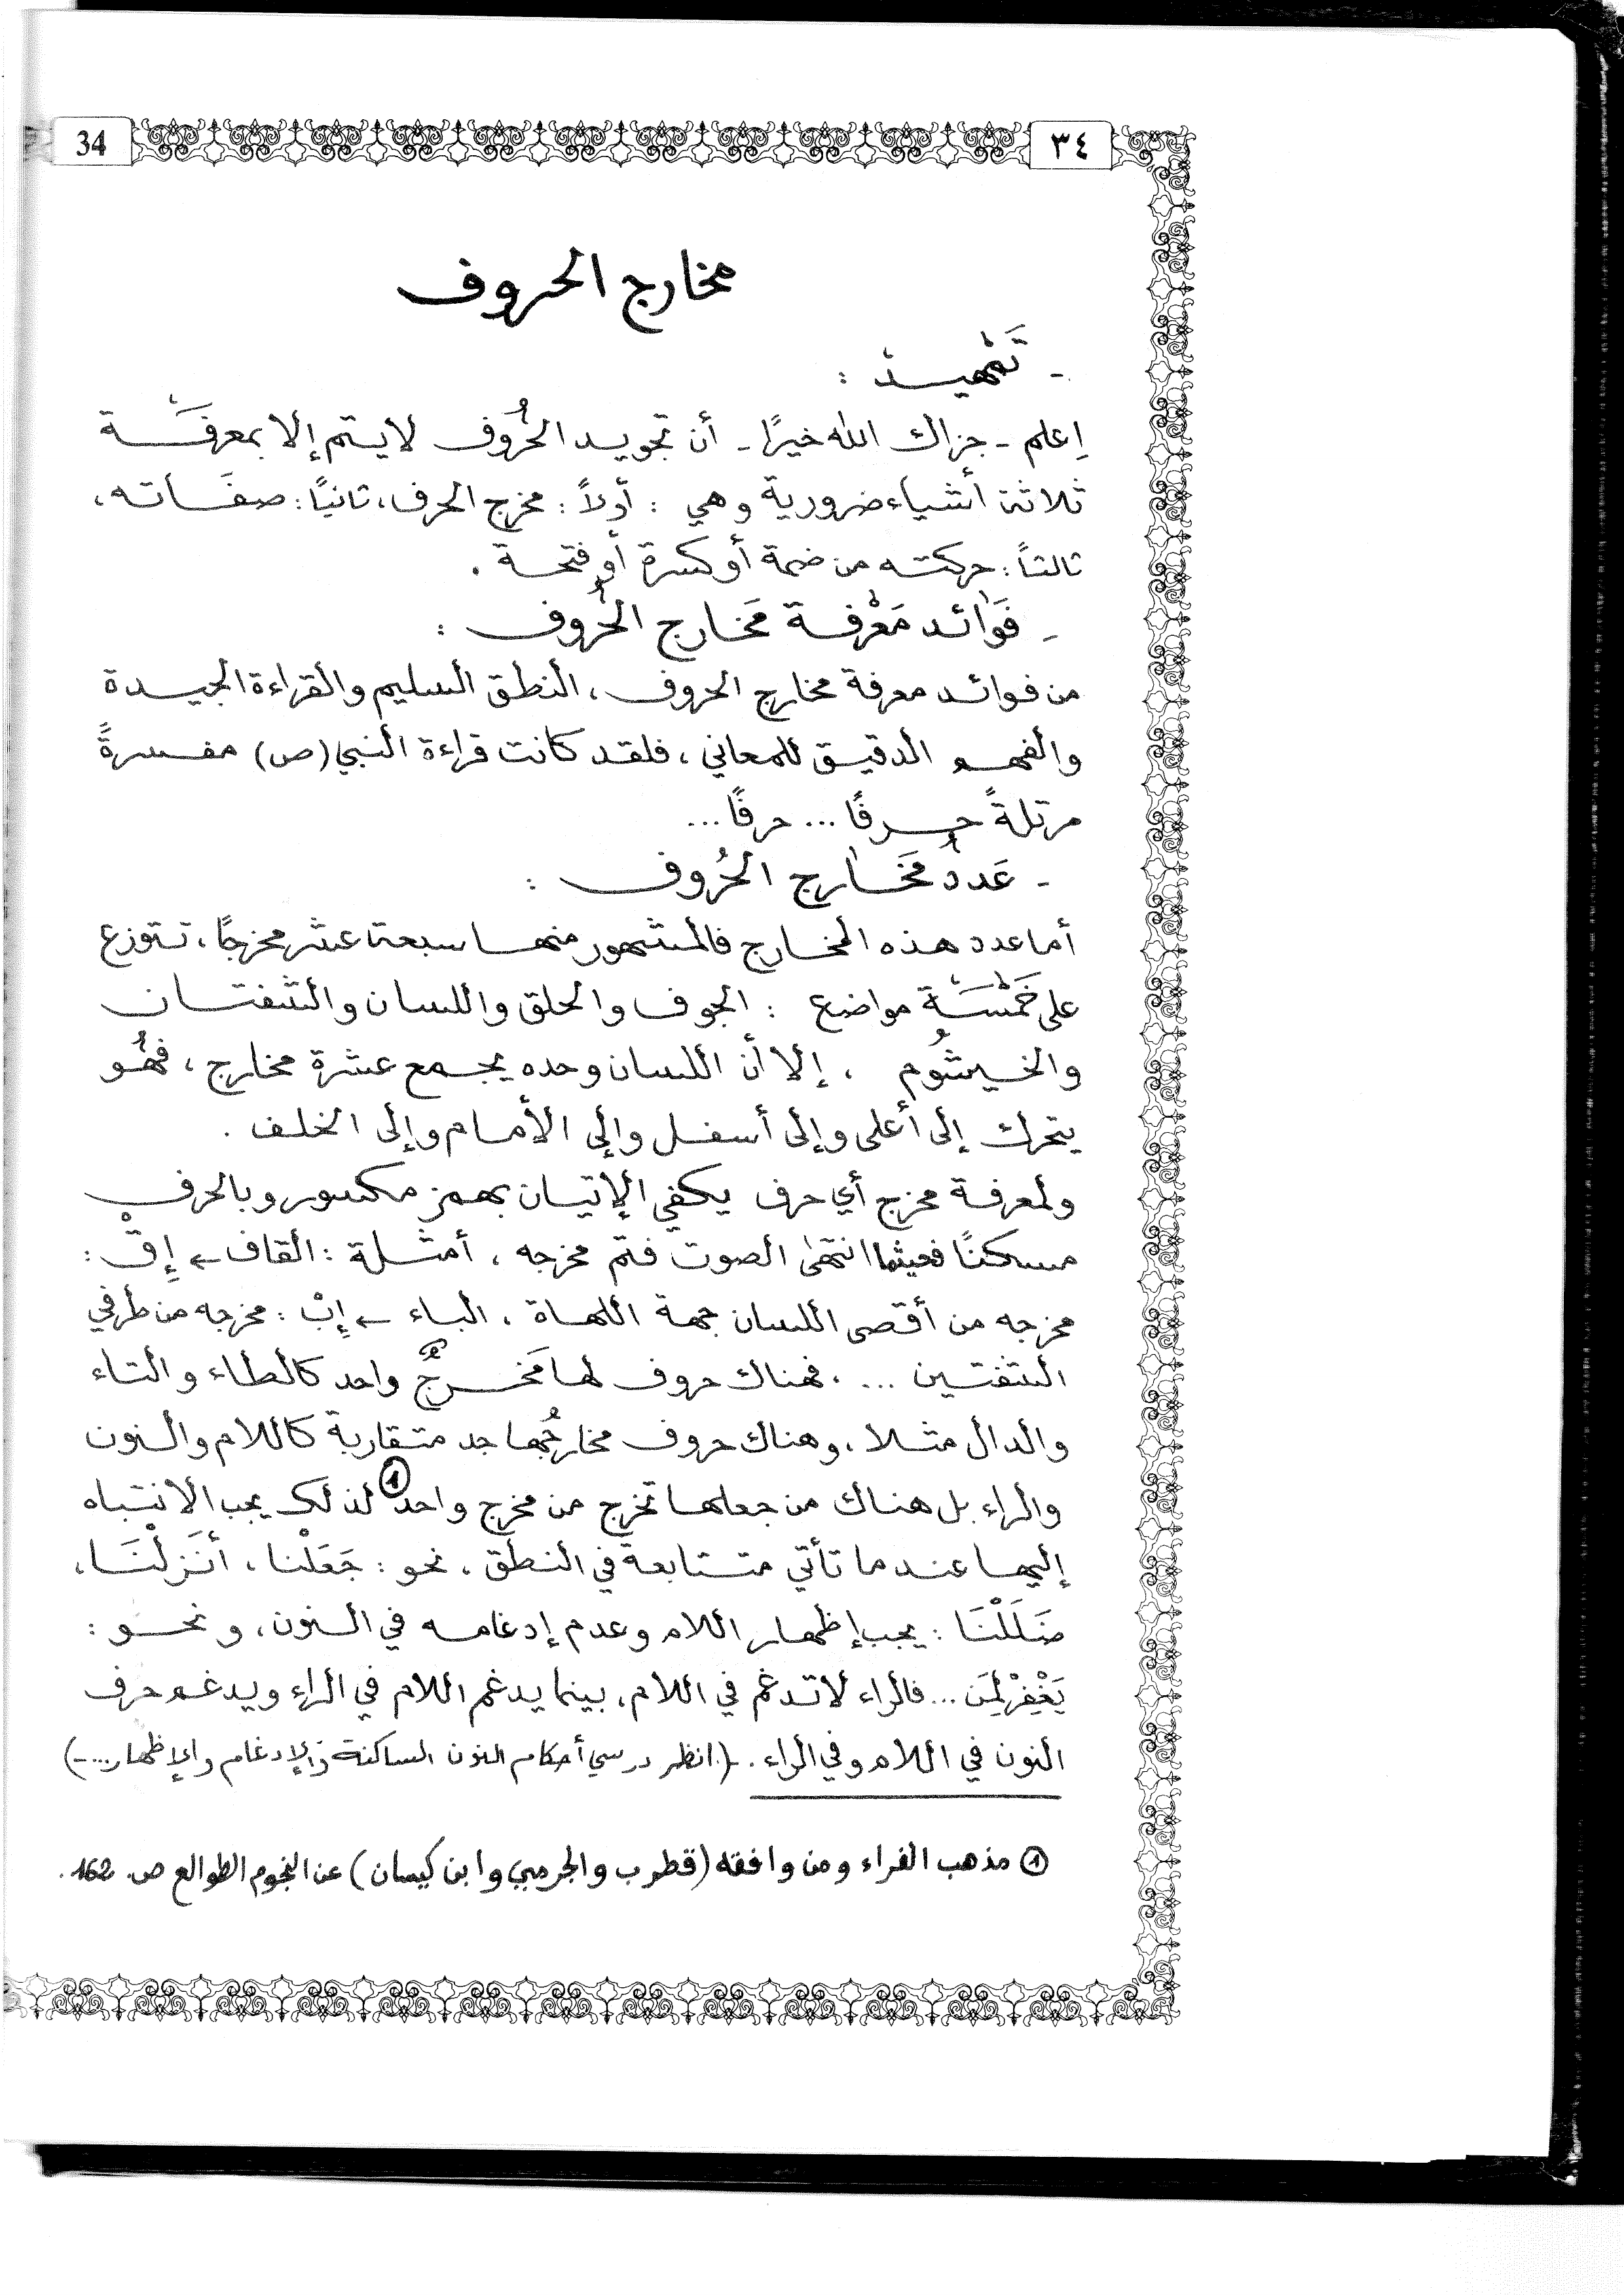 ٣٤
34
مخارج الحروف
- تَمْهِيد :
اِعلم - جزاك الله خيرًا - أن تجويد الحُروف لا يتم إلا بمعرفَة
ثلاثة أشياء ضرورية وهي : أولاً : مخرج الحرف، ثانيًا : صفَاته،
ثالثاً : حركته من ضمة أو كسرة أو فتحة .
- فَوَائد مَعْرفة مَخارج الحُروف :
من فوائد معرفة مخارج الحروف، النطق السليم والقراءة الجيدة
والفهم الدقيق للمعاني، فلقد كانت قراءة النبي (ص) مفسرةً
مرتلةً حرفًا ... حرفًا ...
- عَددُ مَخَارج الحُروف :
أما عدد هذه المخارج فالمشهور منها سبعة عشر مخرجًا، تتوزع
على خَمْسَة مواضع : الجوف والحلق واللسان والشفتان
والخيشُوم ، إلا أن اللسان وحده يجمع عشرة مخارج، فهُو
يتحرك إلى أعلى وإلى أسفل وإلى الأمام وإلى الخلف .
ولمعرفة مخرج أي حرف يكفي الإتيان بهمز مكسور وبالحرف
مسكنًا فحيثما انتهى الصوت فثم مخرجه، أمثلة : القاف ← إِقْ :
مخرجه من أقصى اللسان جهة اللهاة، الباء ← إِبْ : مخرجه من طرفي
الشفتين ... ، فهناك حروف لها مَخرجٌ واحد كالطاء والتاء
والدال مثلا، وهناك حروف مخارجُها جد متقاربة كاللام والنون
والراء بل هناك من جعلها تخرج من مخرج واحد ① لذلك يجب الانتباه
إليها عندما تأتي متتابعة في النطق، نحو : جَعَلْنا، أنَزلْنَا،
ضَلَلْنَا : يجب إظهار اللام وعدم إدغامه في النون، ونحو :
يَغْفِرْ لِمَن ... فالراء لا تدغم في اللام، بينما يدغم اللام في الراء ويدغم حرف
النون في اللام وفي الراء . (انظر درسي أحكام النون الساكنة والإدغام والإظهار ...)
① مذهب الفراء ومن وافقه (قطرب والجرمي وابن كيسان) عن النجوم الطوالع ص. 162.